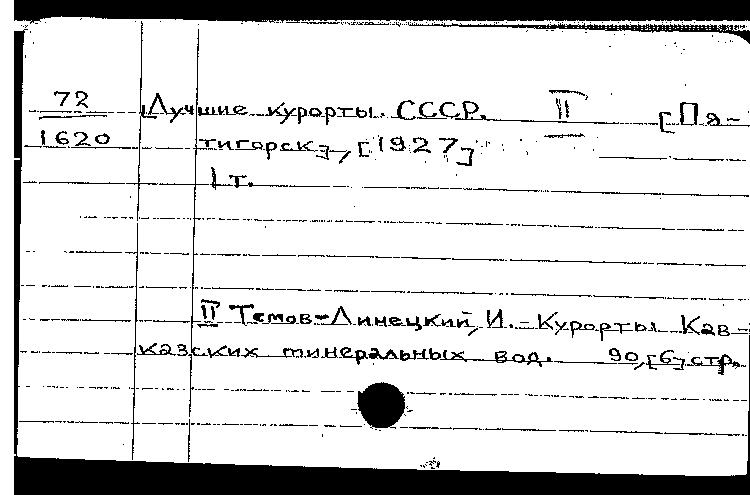 72 Лучшие курорты СССР. II [Пя-
1620 тигорск], [1927]
1 т.
II Темов-Линецкий, И. - Курорты Кав-
казских минеральных вод. 90,[6] стр.